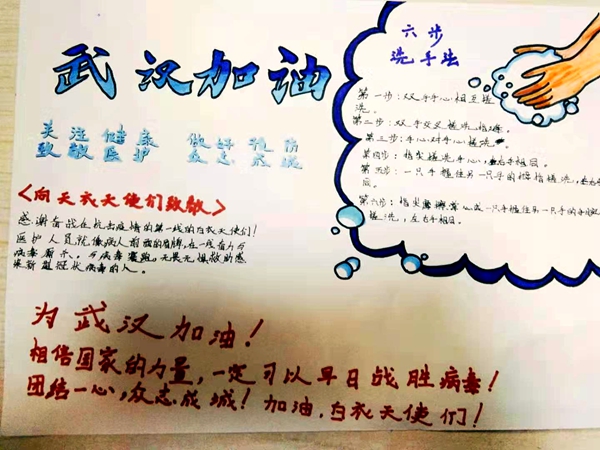 武汉加油
关注健康 做好预防
致敬医护 众志成城
<向天衣天使们致敬>
感谢奋战在抗击疫情的第一线的白衣天使们!
医护人员就像病人前面的盾牌,在一线奋力与
病毒厮杀,与病毒赛跑,无畏无惧救助感
染新型冠状病毒的人。
六步
洗手法
第一步:双手手心相互搓
洗。
第二步:双手交叉搓洗指缝。
第三步:手心对手心搓洗。
第四步:指尖搓洗手心,右手相同。
第五步:一只手握住另一只手的拇指搓洗,左右
第六步:指尖摩擦掌心或一只手握住另一只手的
搓洗,左右手相同。
为武汉加油!
相信国家的力量,一定可以早日战胜病毒!
团结一心,众志成城!加油,白衣天使们!